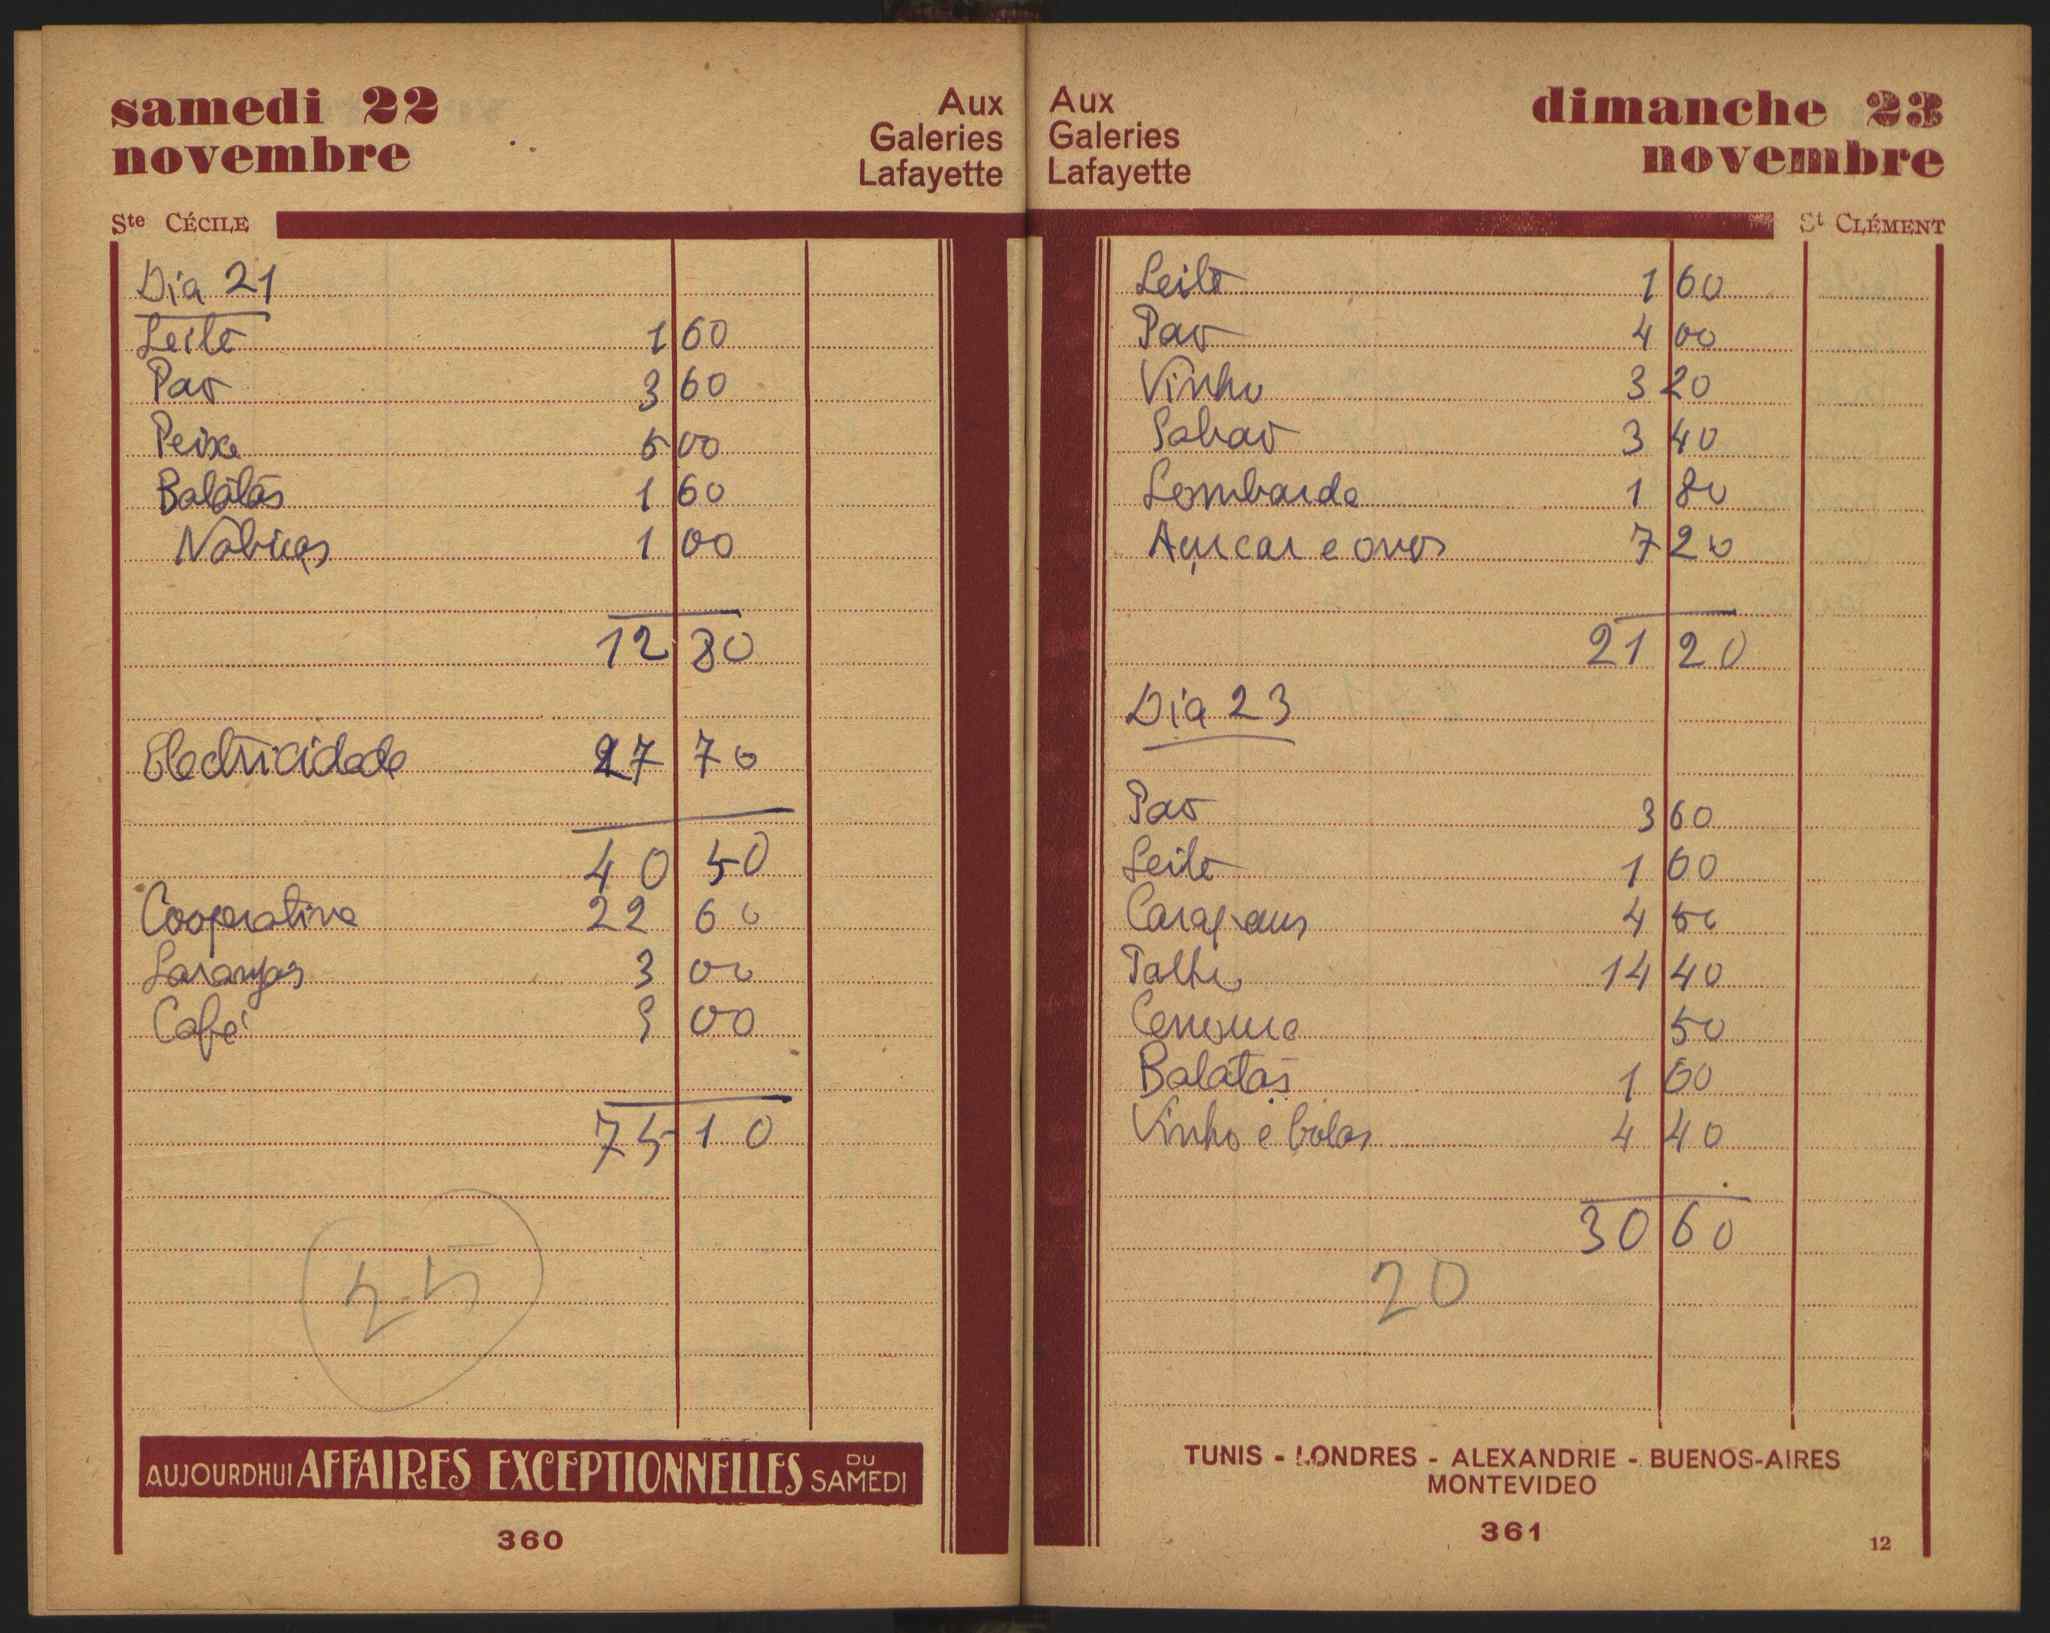 samedi 22
novembre
Aux
Galeries
Lafayette
Ste CÉCILE
Dia 21
Leite 1 60
Pao 3 60
Peixe 5 00
Batatas 1 60
Nabiças 1 00
12 80
Electricidade 27 70
40 50
Cooperativa 22 60
Laranjas 3 00
Café 9 00
75 10
25
AUJOURDHUI AFFAIRES EXCEPTIONNELLES DU SAMEDI
360
Aux
Galeries
Lafayette
dimanche 23
novembre
St CLÉMENT
Leite 1 60
Pao 4 00
Vinho 3 20
Sabao 3 40
Lombarda 1 80
Açucar e ovos 7 20
21 20
Dia 23
Pao 3 60
Leite 1 60
Carapaus 4 50
Talho 14 40
Cenoura 50
Batatas 1 60
Vinho e bolos 4 40
30 60
20
TUNIS - LONDRES - ALEXANDRIE - BUENOS-AIRES
MONTEVIDEO
361
12